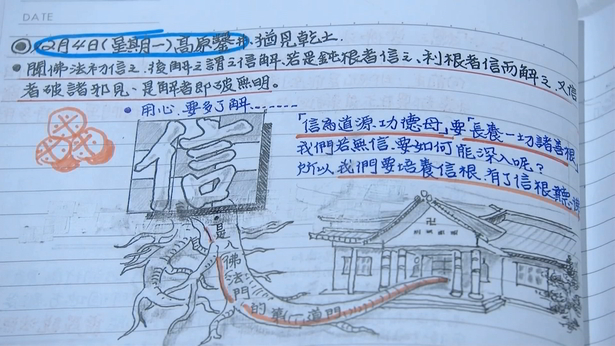 DATE
2月4日(星期一)高原鑿井,猶見乾土.
•聞佛法初信之,後解之謂之信解.若是鈍根者信之、利根者信而解之、又信
者破諸邪見、是解者即破無明。
•用心.要多了解........
信
「信為道源、功德母」要「長養一切諸善根」
我們若無信.要如何能深入呢?
所以我們要培養信根.有了信根聽
是入
佛法門
的
道門
卍